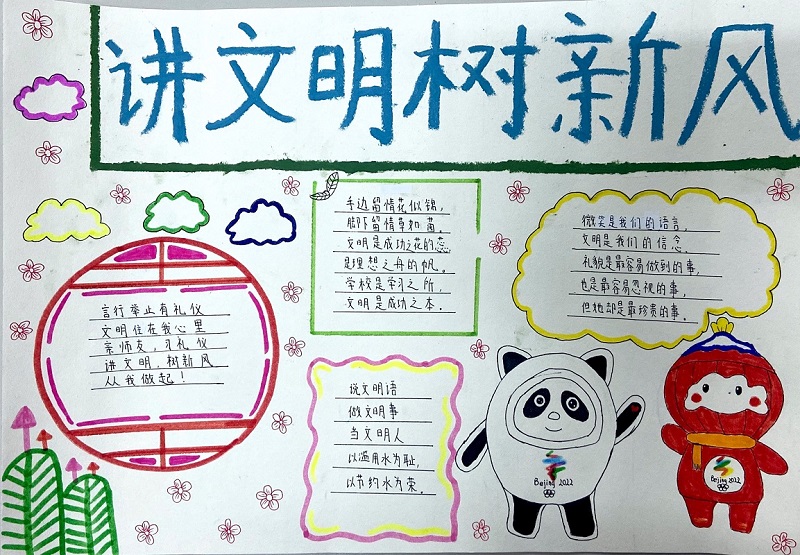 讲文明树新风
言行举止有礼仪
文明住在我心里
亲师友，习礼仪
讲文明，树新风
从我做起！
手边留情花似锦，
脚下留情草如茵。
文明是成功之花的蕊，
是理想之舟的帆。
学校是学习之所，
文明是成功之本。
微笑是我们的语言，
文明是我们的信念。
礼貌是最容易做到的事，
也是最容易忽视的事，
但她却是最珍贵的事。
说文明语
做文明事
当文明人
以滥用水为耻，
以节约水为荣。
Beijing 2022
Beijing 2022